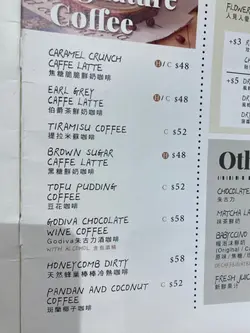 Signature
Coffee
CARAMEL CRUNCH
CAFFE LATTE
H / C $48
焦糖脆脆鮮奶咖啡
EARL GREY
CAFFE LATTE
H / C $48
伯爵茶鮮奶咖啡
TIRAMISU COFFEE
C $52
提拉米蘇咖啡
BROWN SUGAR
CAFFE LATTE
H / C $48
黑糖鮮奶咖啡
TOFU PUDDING
COFFEE
C $52
豆花咖啡
GODIVA CHOCOLATE
WINE COFFEE
C $58
Godiva朱古力酒咖啡
WITH ALCOHOL 含有酒精
HONEYCOMB DIRTY
$58
天然蜂巢棒棒冷熱咖啡
PANDAN AND COCONUT
COFFEE
C $52
斑蘭椰子咖啡
FLOWER
+$3
+$5
Oth
CHOCOLATE
朱古力
MATCHA LA
抹茶鮮奶
BABYCCINO
(Original / C
FRESH JUICE
新鮮果汁